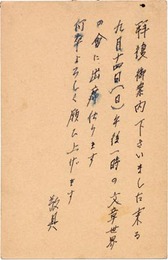 拝復 御案内下さいました来る
九月十四日(日)午後一時の文章世界
の会に出席仕ります
何卒よろしく願ひ上げます
敬具